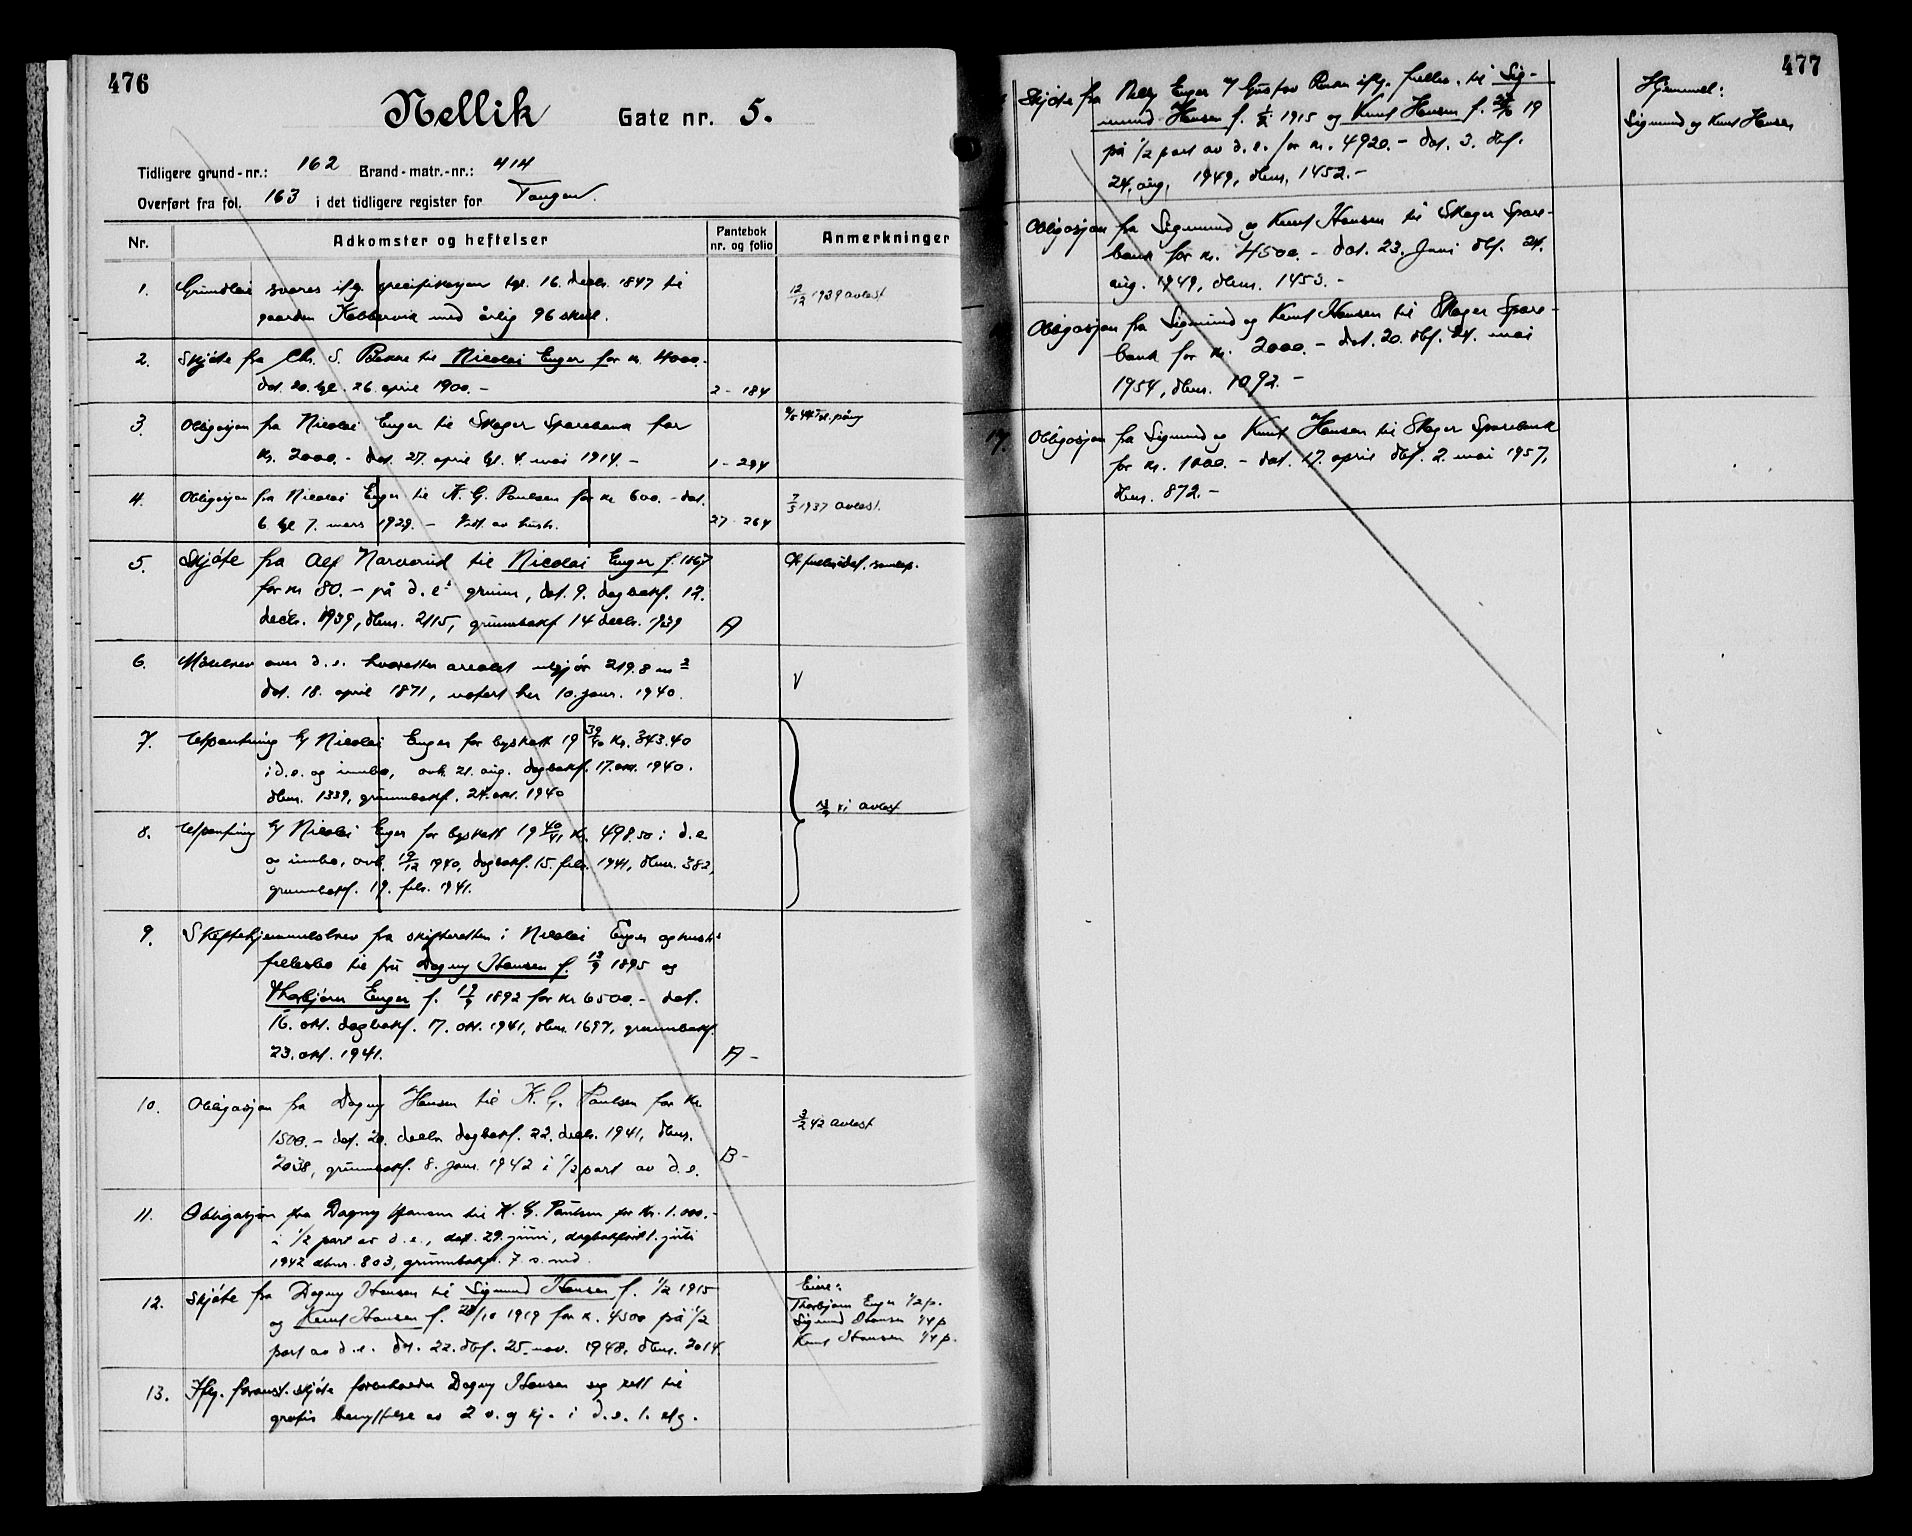 476
Nellik Gate nr. 5.
Tidligere grund-nr.: 162 Brand-matr.-nr.: 414
Overført fra fol. 163 i det tidligere register for Tangen.
Nr. Adkomster og heftelser Pantebok nr. og folio Anmerkninger
1. Grundleie svares ifg. specifikasjon tgl. 16. decbr. 1847 til 12/12 1939 avlest
gaarden Kobbervik med årlig 96 skill.
2. Skjöte fra Chr. S. Bakke til Nicolai Enger for kr. 4000.-
dat. 20. tgl. 26. april 1900. - 2 - 184
3. Obligasjon fra Nicolai Enger til Skoger Sparebank for
kr. 2000. - dat. 27. april tgl. 4. mai 1914. - 1 - 294
4. Obligasjon fra Nicolai Enger til K. G. Paulsen for kr. 600. - dat. 7/3 1937 avlest.
6. tgl 7. mars 1929. - av hustr. 27 - 264
5. Skjöte fra Alf Narverud til Nicolai Enger f. 1867
for kr 80. - på d. e's grunn, dat. 9. dagbokf. 12.
decbr. 1939, dbnr. 2115, grunnbokf 14 decbr. 1939 A
6. Målebrev over d. e. hvoretter arealet utgjör 219.8 m2 V
dat. 18. april 1871, notert her 10. jan. 1940.
7. Utpantning h/ Nicolai Enger for byskatt 19 39/40 kr. 343.40
i d. e. og innbo, avh. 21. aug. dagbokf. 17. okt. 1940.
dbnr. 1339, grunnbokf. 24. okt. 1940
41 avlest
8. Utpantning h/ Nicolai Enger for byskatt 19 40/41 kr. 498.50 i d. e.
og innbo, avh. 19/12 1940, dagbokf. 15. febr. 1941, dbnr. 382,
grunnbokf. 19. febr. 1941.
9. Skiftehjemmelsbrev fra skifteretten i Nicolai Enger og hustrs
fellesbo til fru Dagny Hansen f. 13/9 1895 og
Thorbjörn Enger f. 19/9 1892 for kr 6500. - dat.
16. okt. dagbokf. 17. okt. 1941, dbnr. 1697, grunnbokf.
23. okt. 1941. A -
10. Obligasjon fra Dagny Hansen til K. G. Paulsen for kr.
1500. - dat. 20. decbr dagbokf. 22. decbr. 1941, dbnr. 3/2 42 avlest
2038, grunnbokf. 8. jan. 1942 i 1/2 part av d. e. B -
11. Obligasjon fra Dagny Hansen til K. G. Paulsen for kr. 1.000.-
i 1/2 part av d. e., dat. 29. juni, dagbokfört 1. juli
1942 dbnr. 803, grunnbokf. 7 s. md.
12. Skjöte fra Dagny Hansen til Sigmund Hansen f. 1/2 1915
og Knut Hansen f. 28/10 1919 for kr. 4500 på 1/2
part av d. e. dat. 22. dbf. 25. nov. 1948, dbnr. 2014.
Eiere:
Thorbjörn Enger 1/2 p.
Sigmund Hansen 1/4 p
Knut Hansen 1/4 p.
13. Ifg. foranst. skjöte forbeholder Dagny Hansen sig rett til
gratis benyttelse av 2 v. og kj. i d. e. 1. etg.
477
Skjöte fra Enger v/ Gustav ifg. fullm. til Sig-
mund Hansen f. 1/2 1915 og Knut Hansen f. 28/10 19
på 1/2 part av d. e. for kr. 4920. - dat. 3. dbf.
24. aug. 1949, dbnr. 1452. -
Hjemmel:
Sigmund og Knut Hansen
Obligasjon fra Sigmund og Knut Hansen til Skoger Spare-
bank for kr. 4500. - dat. 23. Juni dbf. 24.
aug. 1949, dbnr. 1453. -
Obligasjon fra Sigmund og Knut Hansen til Skoger Spare-
bank for kr. 2000. - dat. 20. dbf. 24. mai
1954, dbnr. 1092. -
17. Obligasjon fra Sigmund og Knut Hansen til Skoger Sparebank
for kr. 1000. - dat. 17. april dbf. 2. mai 1957,
dbnr. 872. -